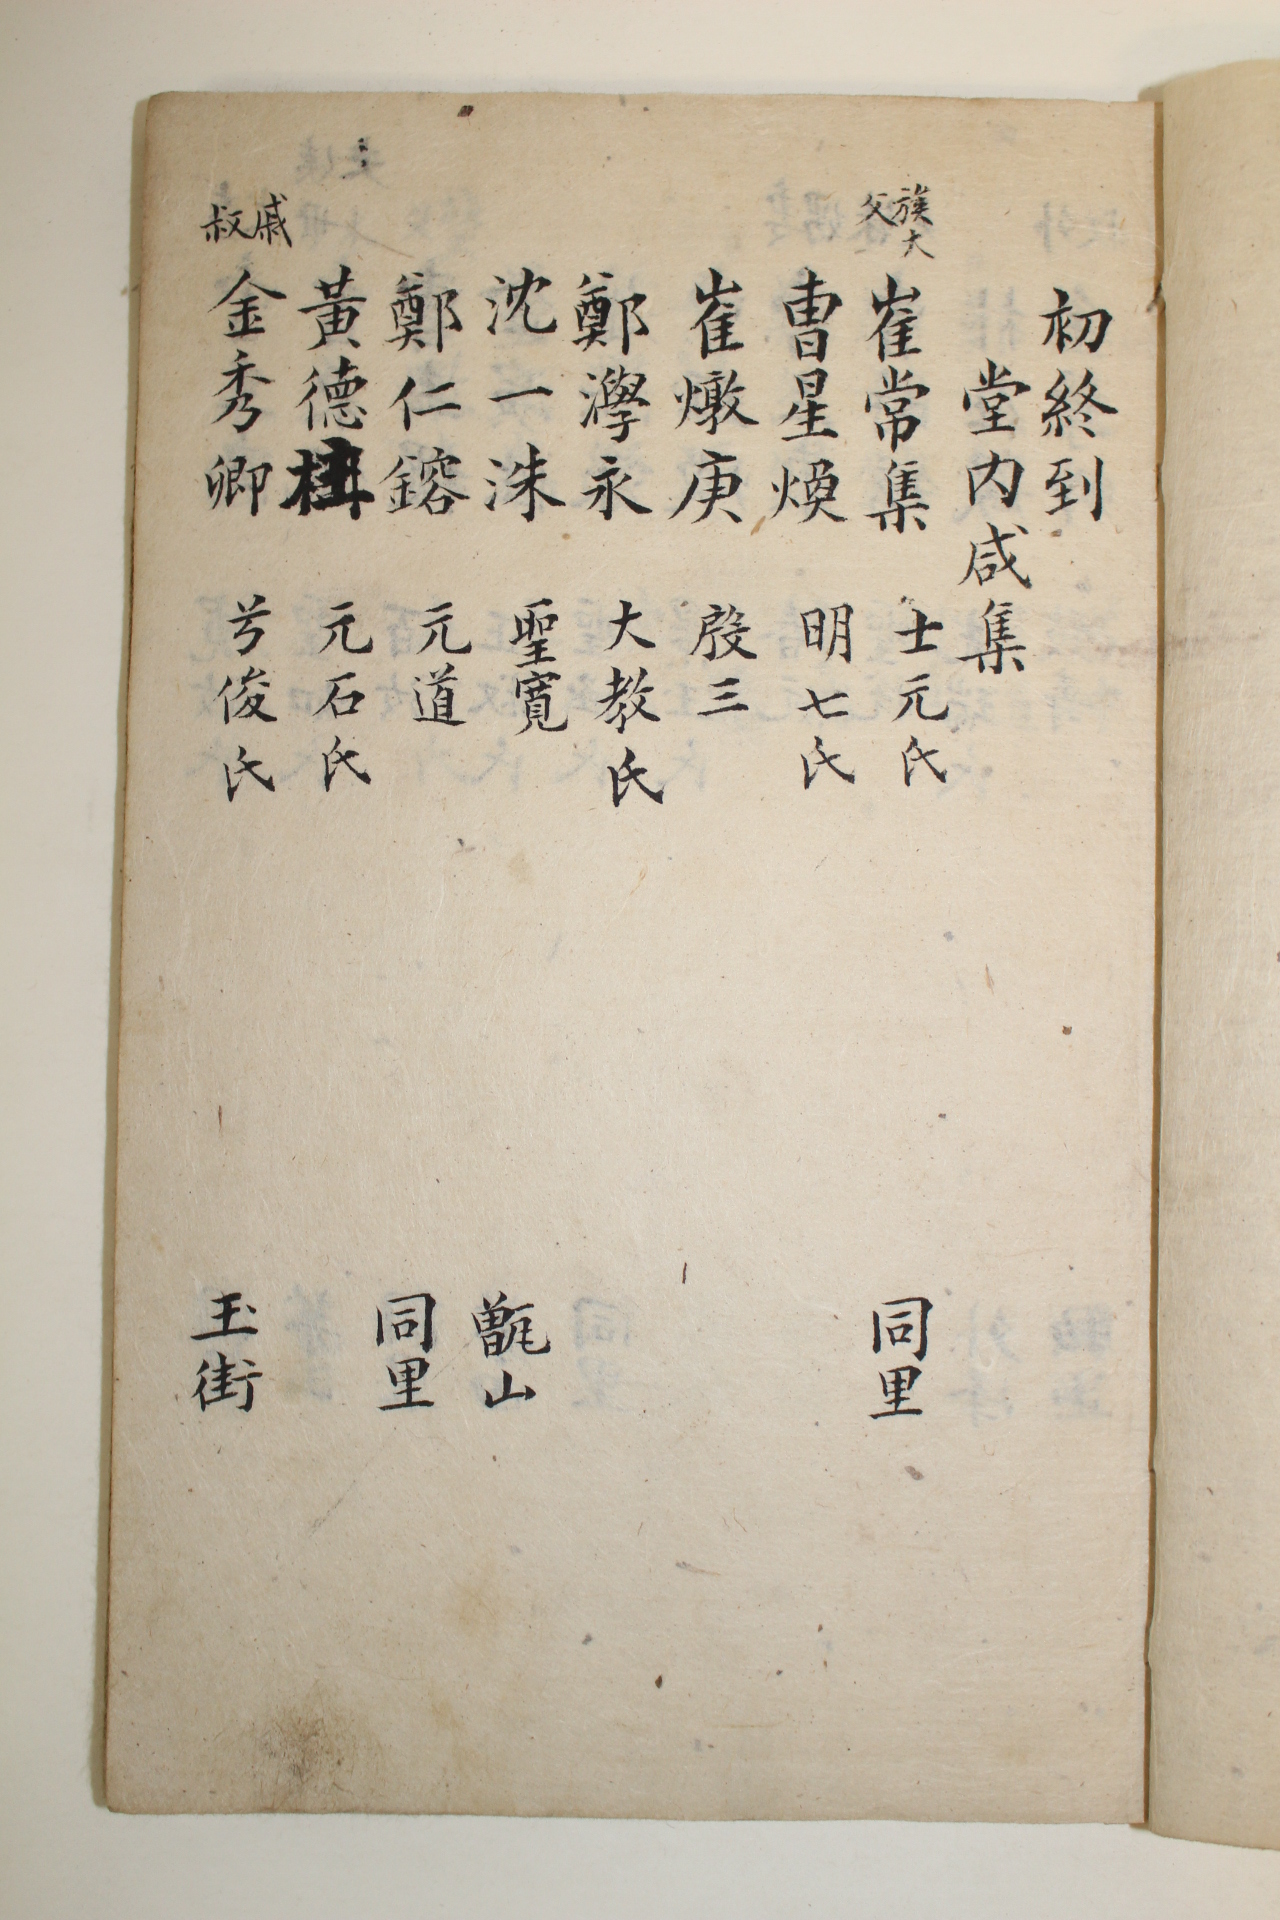 初終到
堂內咸集
族大父 崔常集 士元氏 同里
曺星煥 明七氏
崔燉庚 殷三
鄭㶅永 大教氏
沈一洙 聖寬 甑山
鄭仁鎔 元道 同里
黃德 元石氏
戚叔 金秀卿 兮俊氏 玉街